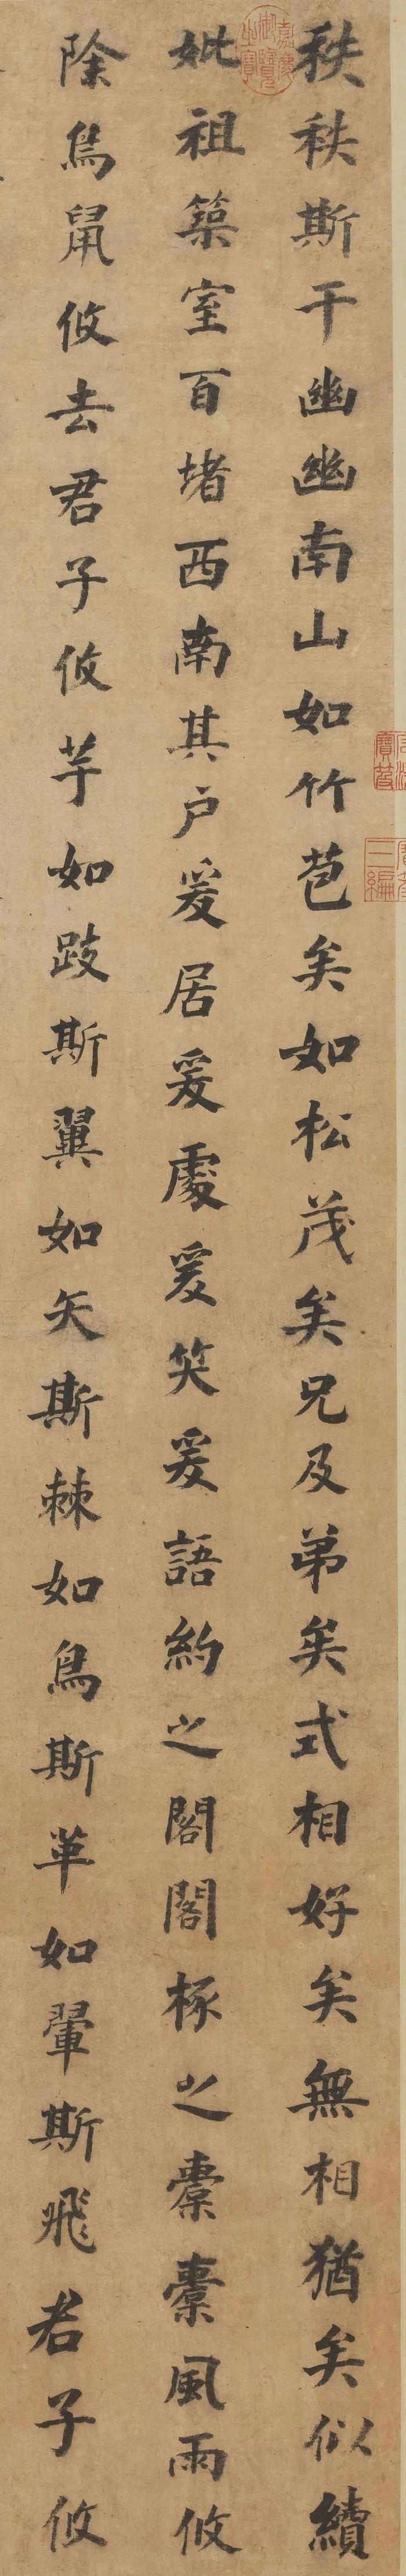 秩秩斯干幽幽南山如竹苞矣如松茂矣兄及弟矣式相好矣無相猶矣似續
妣祖築室百堵西南其户爰居爰處爰笑爰語約之閣閣椓之橐橐風雨攸
除鳥鼠攸去君子攸芋如跂斯翼如矢斯棘如鳥斯革如翬斯飛君子攸
嘉慶
御覽
之寶
寶笈
三編